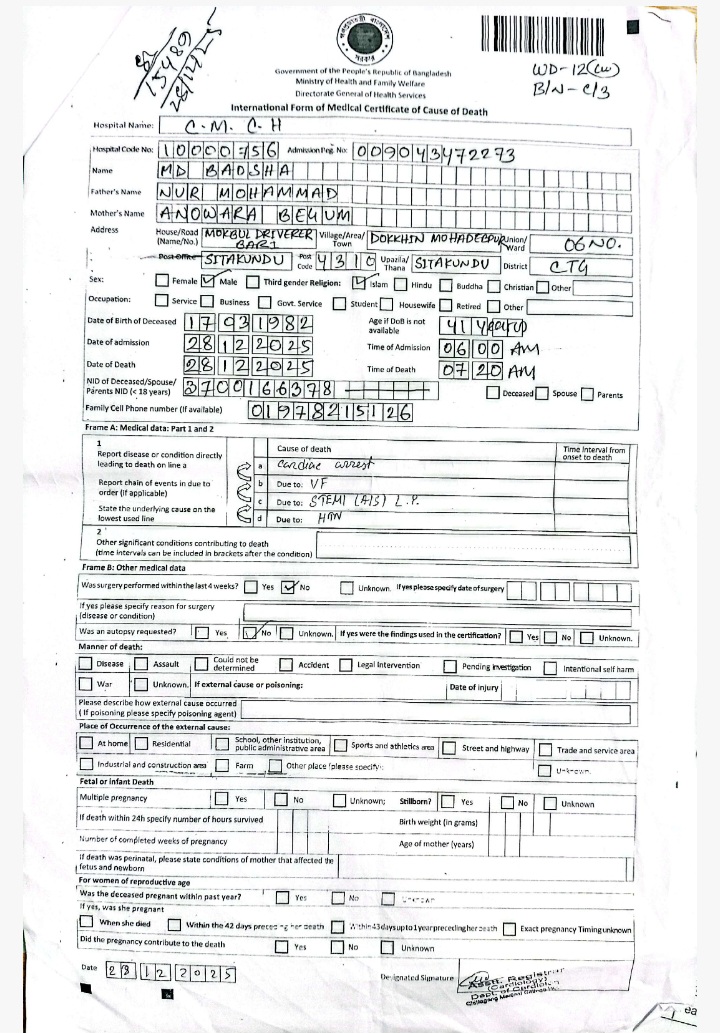 15489
28/12/25
WD-12(cw)
B/N-C/3
Government of the People's Republic of Bangladesh
Ministry of Health and Family Welfare
Directorate General of Health Services
International Form of Medical Certificate of Cause of Death
Hospital Name: C.M.C.H
Hospital Code No: 10000756 Admission Reg. No: 009043472273
Name MD BADSHA
Father's Name NUR MOHAMMAD
Mother's Name ANOWARA BEGUM
Address House/Road (Name/No.) MOKBUL DRIVERER BARI Village/Area/Town DOKKHIN MOHADEBPUR Union/Ward 06 NO.
Post Office SITAKUNDU Post Code 4310 Upazila/Thana SITAKUNDU District CTG
Sex: Female Male Third gender Religion: Islam Hindu Buddha Christian Other
Occupation: Service Business Govt. Service Student Housewife Retired Other
Date of Birth of Deceased 17031982 Age if DoB is not available 41 year
Date of admission 28122025 Time of Admission 0600 AM
Date of Death 28122025 Time of Death 0720 AM
NID of Deceased/Spouse/Parents NID (< 18 years) 3700166378 Deceased Spouse Parents
Family Cell Phone number (If available) 01978215126
Frame A: Medical data: Part 1 and 2
1 Cause of death Time Interval from onset to death
Report disease or condition directly leading to death on line a
a Cardiac arrest
Report chain of events in due to order (if applicable)
b Due to: VF
c Due to: STEMI (A/S) L.P.
State the underlying cause on the lowest used line
d Due to: HTN
2
Other significant conditions contributing to death
(time intervals can be included in brackets after the condition)
Frame B: Other medical data
Was surgery performed within the last 4 weeks? Yes No Unknown. If yes please specify date of surgery
If yes please specify reason for surgery
(disease or condition)
Was an autopsy requested? Yes No Unknown. If yes were the findings used in the certification? Yes No Unknown.
Manner of death:
Disease Assault Could not be determined Accident Legal Intervention Pending investigation Intentional self harm
War Unknown. If external cause or poisoning: Date of injury
Please describe how external cause occurred
(If poisoning please specify poisoning agent)
Place of Occurrence of the external cause:
At home Residential School, other institution, public administrative area Sports and athletics area Street and highway Trade and service area
Industrial and construction area Farm Other place (please specify: Unknown.
Fetal or infant Death
Multiple pregnancy Yes No Unknown; Stillborn? Yes No Unknown
If death within 24h specify number of hours survived Birth weight (in grams)
Number of completed weeks of pregnancy Age of mother (years)
If death was perinatal, please state conditions of mother that affected the
fetus and newborn
For women of reproductive age
Was the deceased pregnant within past year? Yes No Unknown
If yes, was she pregnant
When she died Within the 42 days preceding her death Within 43 days up to 1 year preceding her death Exact pregnancy Timing unknown
Did the pregnancy contribute to the death Yes No Unknown
Date 28 12 2025 Designated Signature
Asstt. Registrar
(Cardiology)
Dept. of Cardiology